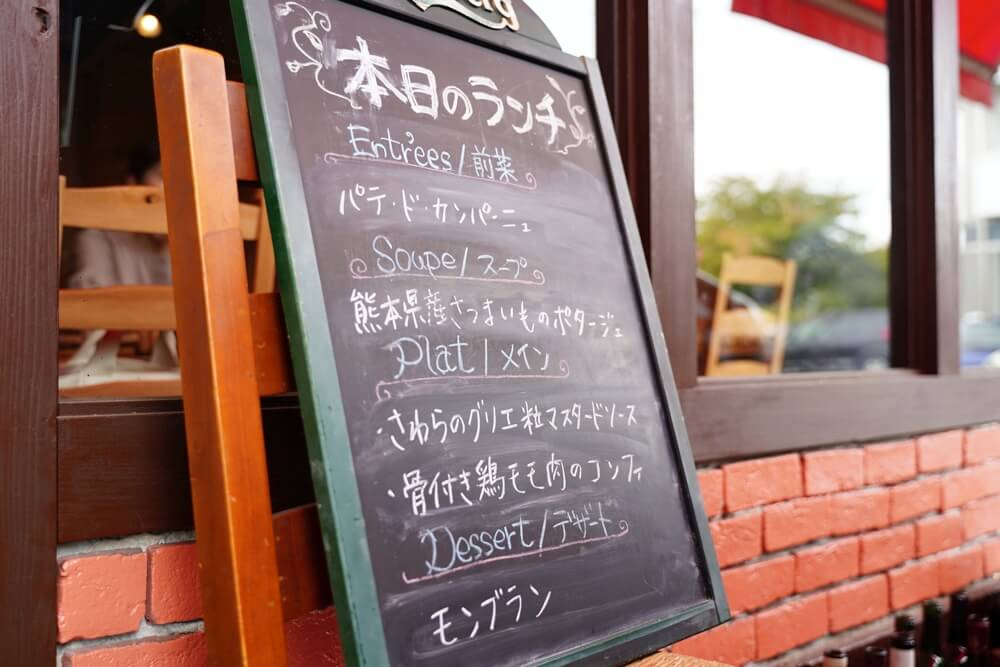 本日のランチ
Entrées/前菜
パテ・ド・カンパーニュ
Soupe/スープ
熊本県産さつまいものポタージュ
Plat/メイン
・さわらのグリエ粒マスタードソース
・骨付き鶏モモ肉のコンフィ
Dessert/デザート
モンブラン